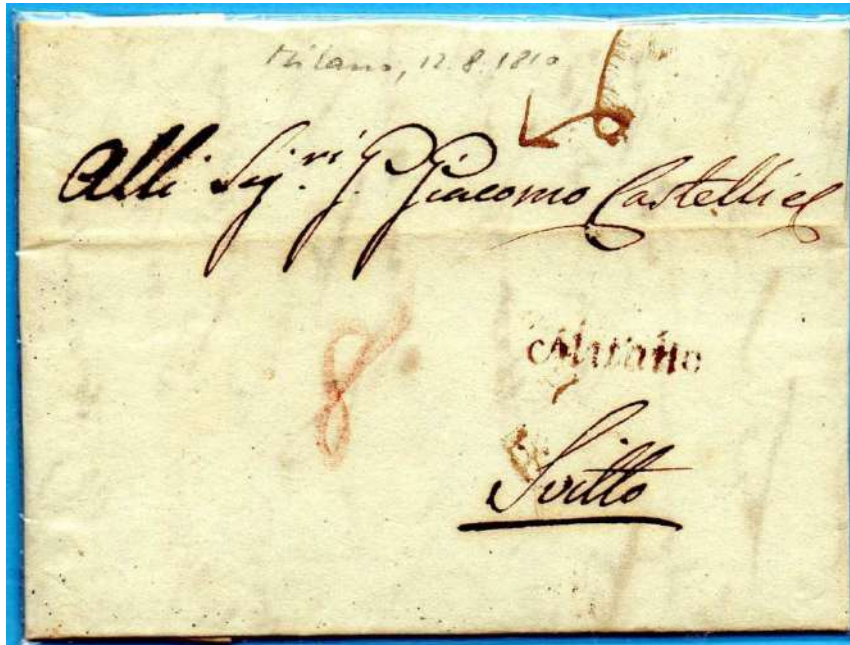 Milano, 12.8.1810
6
Alli Sig.ri G. Giacomo Castelli e C
8
Milano
Svitto